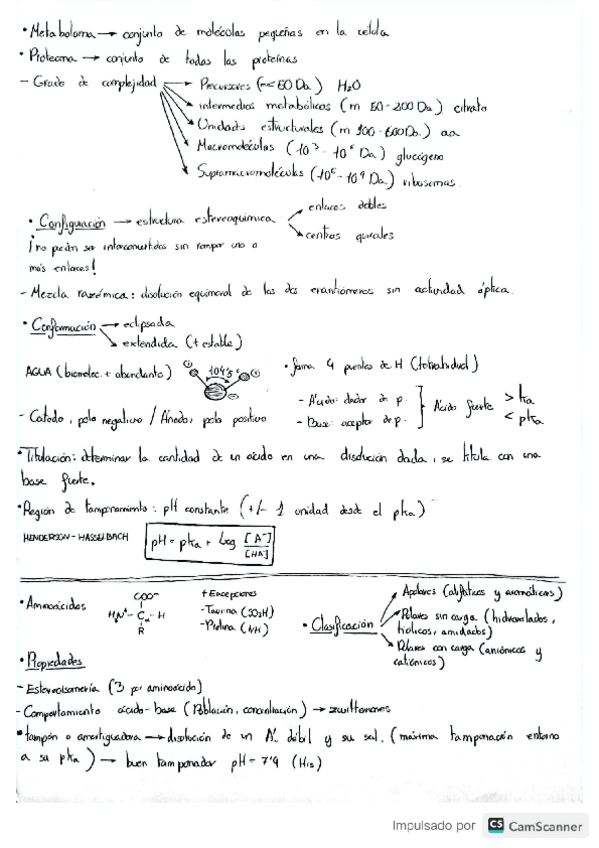 • Metaboloma → conjunto de moléculas pequeñas en la celula
• Proteoma → conjunto de todas las proteínas
- Grado de complejidad → Precursores (m< 50 Da) H₂O
→ intermedios metabólicos (m 50-200 Da) citrato
→ Unidades estructurales (m 100-600Da) aa
→ Macromoléculas (10³- Da) glucógeno
→ Supramacromoléculas (10⁶-10⁹ Da) ribosomas
• Configuración → estructura estereoquímica → enlaces dobles
→ centros quirales
¡no pueden ser interconvertidas sin romper uno o
más enlaces!
- Mezcla racémica: disolución equimolal de los dos enantiómeros sin actividad óptica.
• Conformación → eclipsada
→ extendida (+ estable)
AGUA (biomolec. + abundante) 104'5° • forma 4 puentes de H (tetrahedral)
- Ácido: dador de p.
- Base: aceptor de p. } Ácido fuerte > ka
< pka
- Catodo, polo negativo / Ánodo, polo positivo
• Titulación: determinar la cantidad de un ácido en una disolución dada, se titula con una
base fuerte.
• Región de tamponamiento: pH constante (+/- 1 unidad desde el pka)
HENDERSON-HASSELBACH pH = pka + Log [A⁻]/[HA]
• Aminoácidos
COO⁻
H₃N⁺ - Cα - H
R
+ Excepciones
- Taurina (SO₃H)
- Prolina (NH)
• Clasificación → Apolares (alifáticos y aromáticos)
→ Polares sin carga (hidroxilados,
tiólicos, amidados)
→ Polares con carga (aniónicos y
catiónicos)
• Propiedades
- Estereoisomería (3 por aminoácido)
- Comportamiento ácido-base (Población, concentración) → zwitteriones
• tampón o amortiguadora → disolución de un Ác. débil y su sal. (máxima tamponación entorno
a su pka) → buen tamponador pH = 7'4 (His)
Impulsado por CS CamScanner